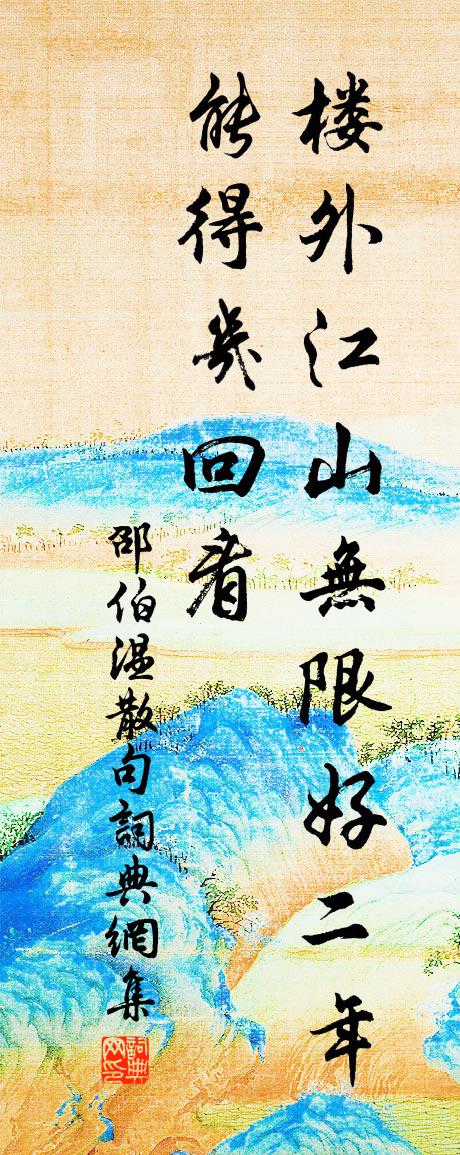 楼外江山無限好二年
能得幾回看
邵伯温散句詞典網集
詞典網印